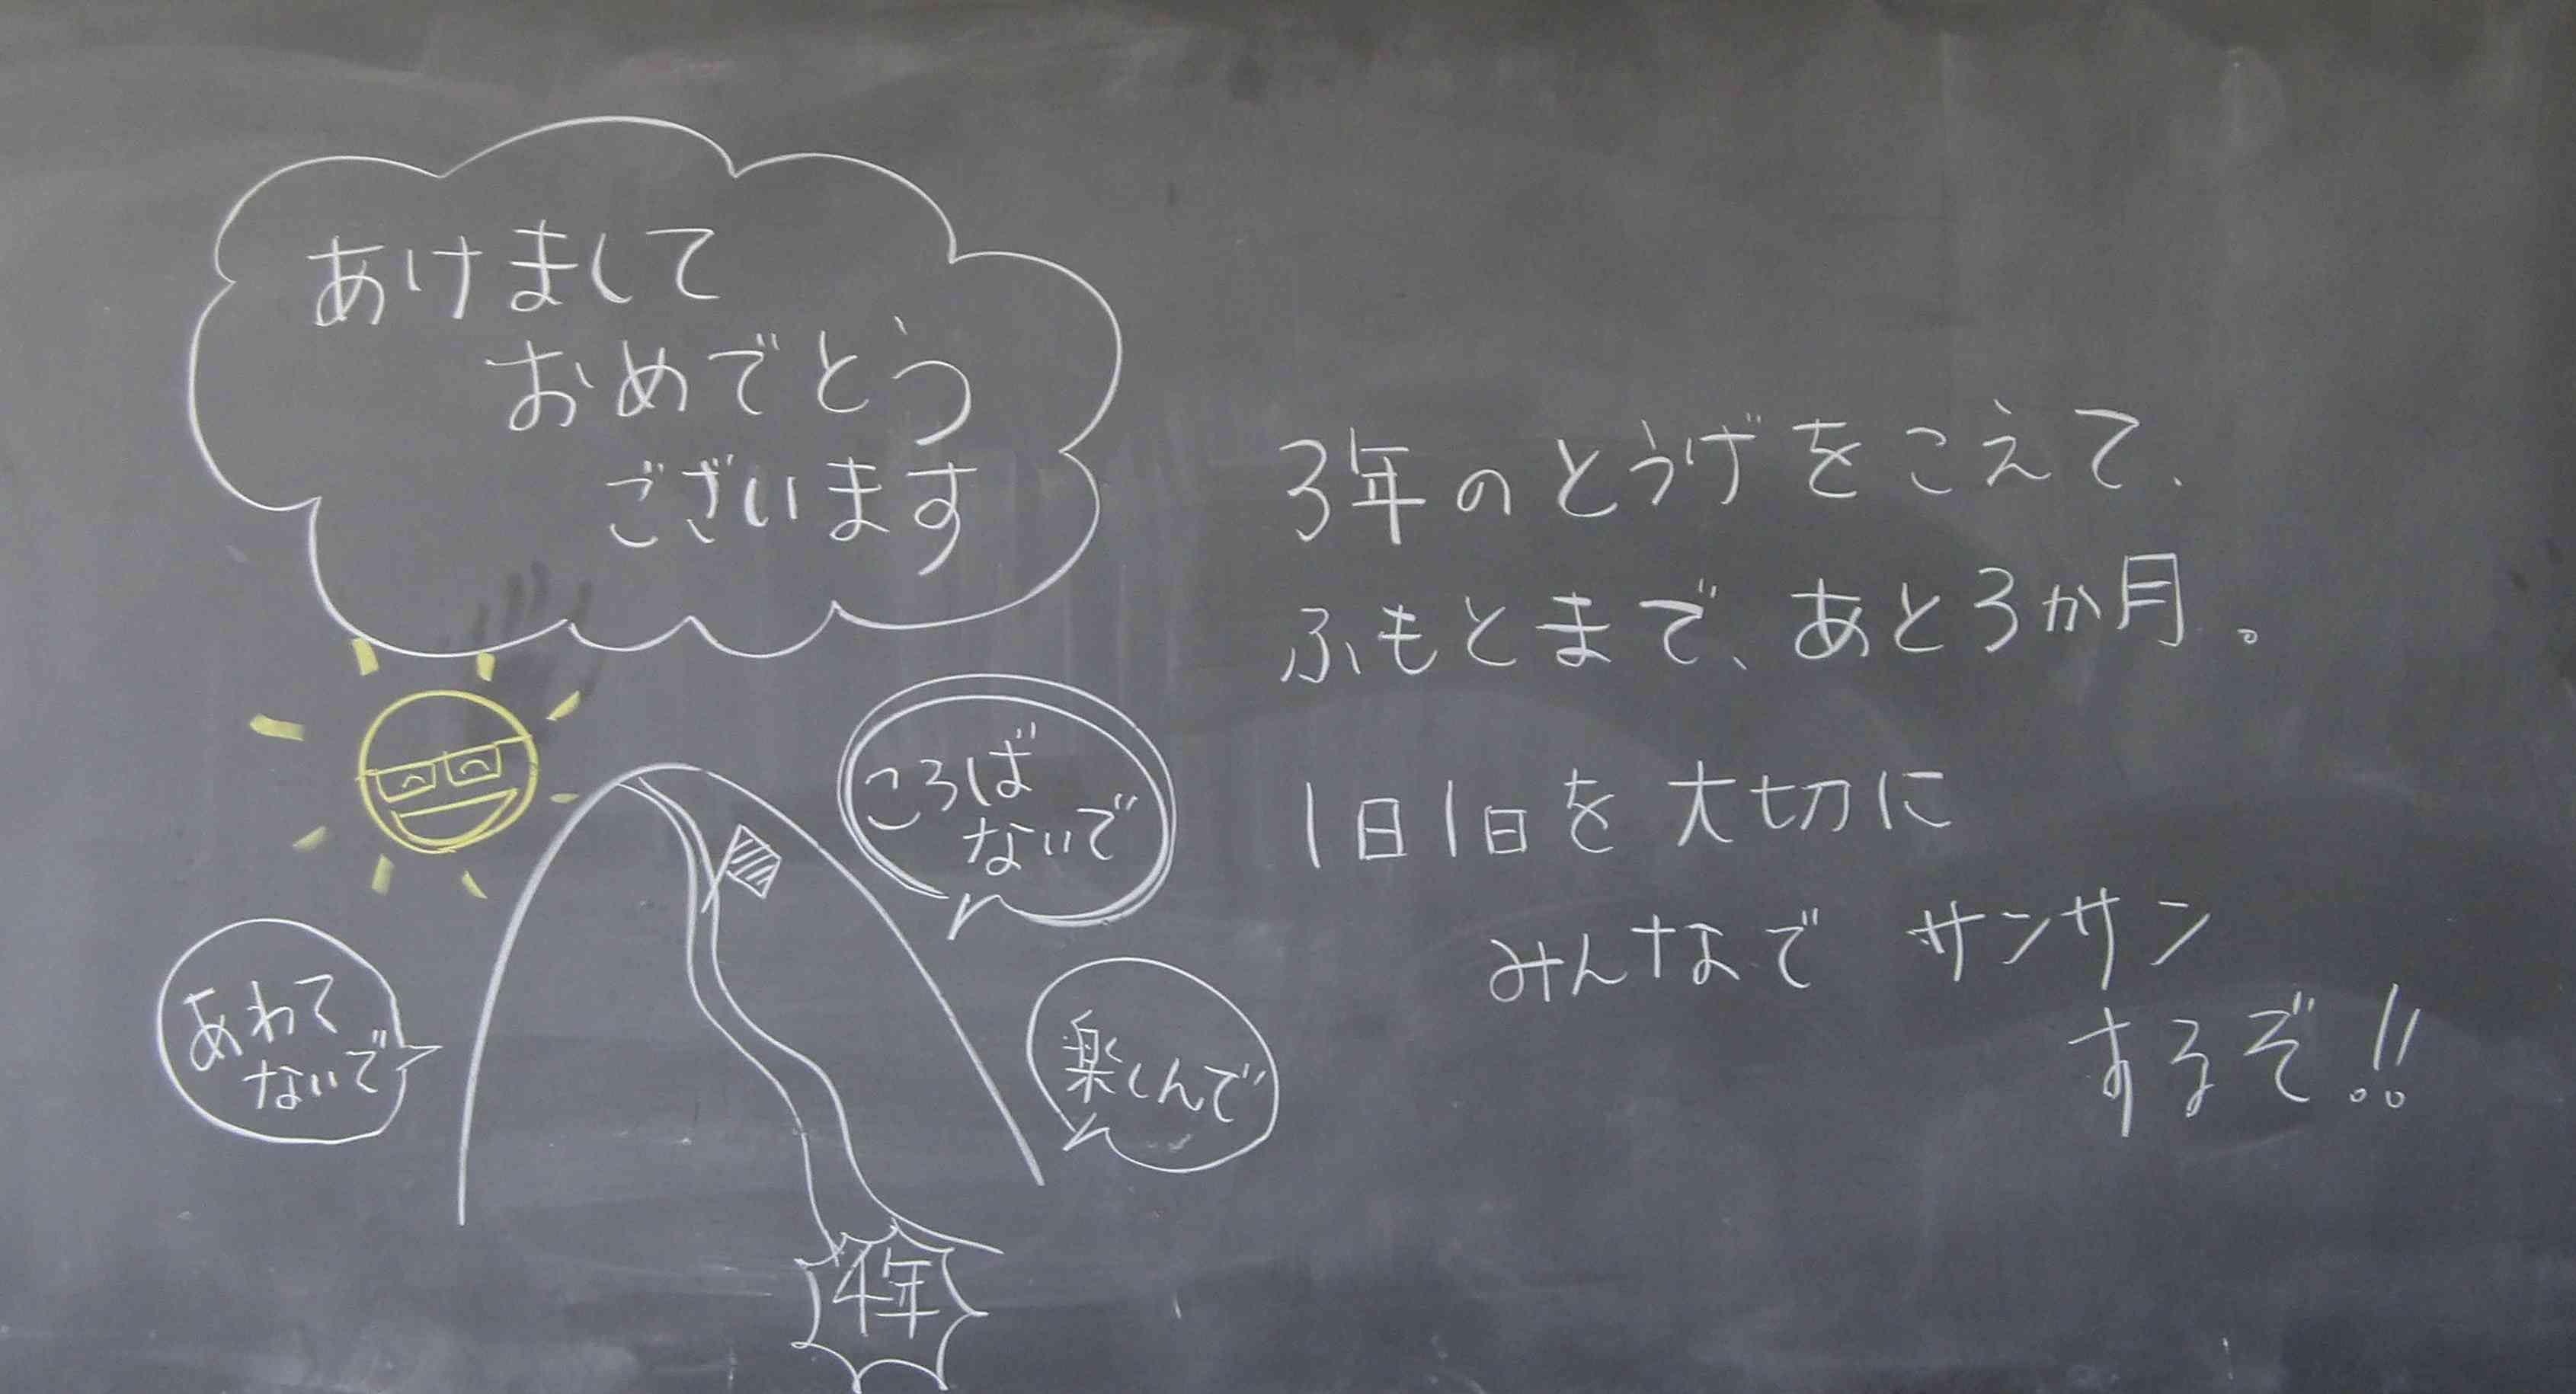 あけまして
おめでとう
ございます
ころば
ないで
あわて
ないで
楽しんで
4年
3年のとうげをこえて、
ふもとまで、あと3か月。
1日1日を大切に
みんなで サンサン
するぞ!!